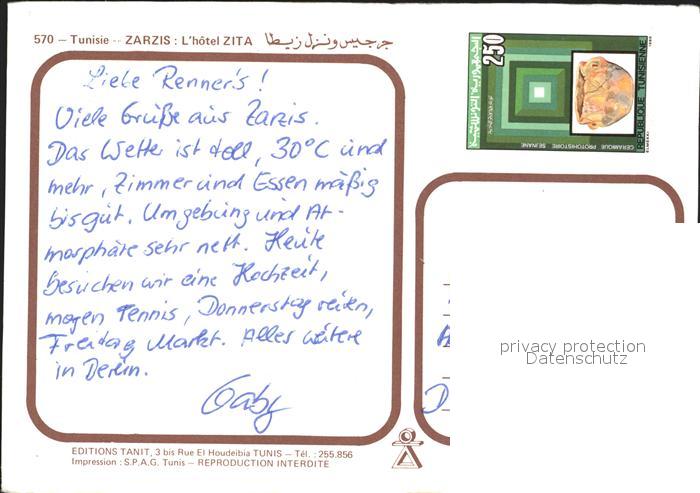 570 – Tunisie -- ZARZIS : L'hôtel ZITA جرجيس ونزل زيطا
Liebe Renner's !
Viele Grüße aus Zarzis.
Das Wetter ist toll, 30°C und
mehr, Zimmer und Essen mäßig
bis gut. Umgebung und At-
mosphäre sehr nett. Heute
besuchen wir eine Hochzeit,
morgen Tennis, Donnerstag reiten,
Freitag Markt. Alles weitere
in Berlin.
Gaby
EDITIONS TANIT, 3 bis Rue El Houdeibia TUNIS – Tél. : 255.856
Impression : S.P.A.G. Tunis – REPRODUCTION INTERDITE
250
REPUBLIQUE TUNISIENNE
CERAMIQUE PROTOHISTOIRE SEJNANE
privacy protection
Datenschutz